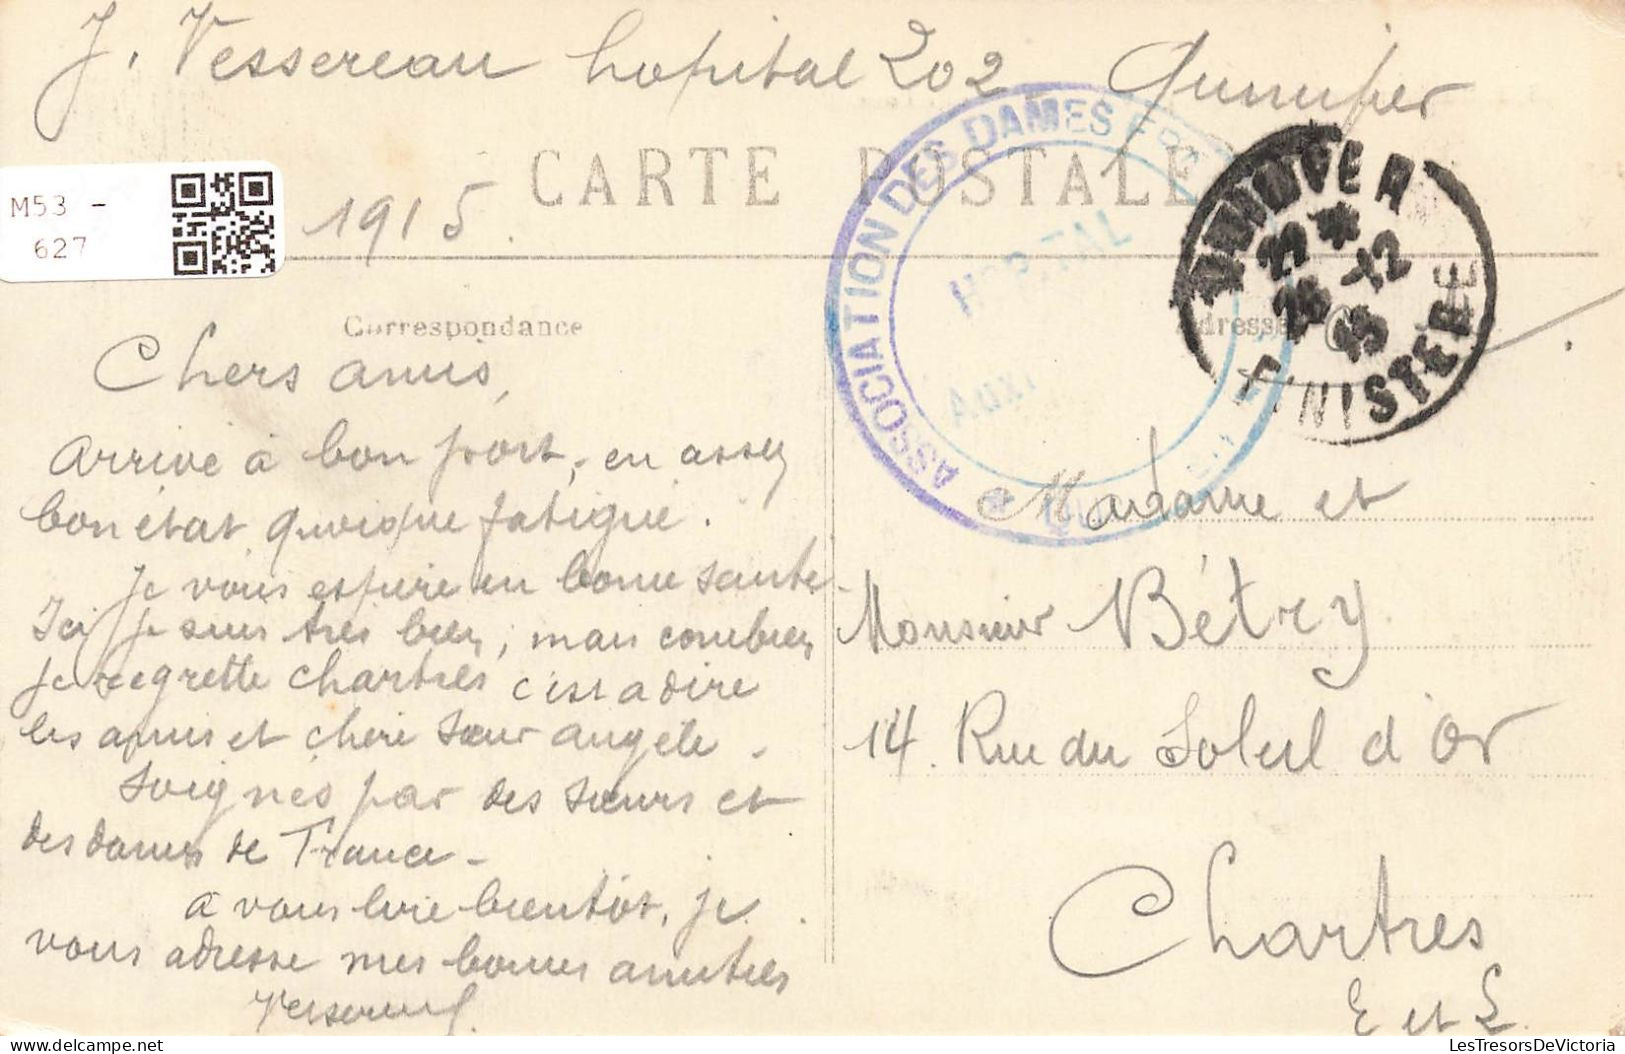 J. Vessereau hopital 202 Quimper
CARTE POSTALE
M53 -
627
1915.
ASSOCIATION DES DAMES FRA
HOPITAL
Auxi
QUIMPER
22 *
26 - 12
15
FINISTÈRE
Correspondance
Adresse
Chers amis,
Arrivé à bon port, en assez
bon état quoique fatigué.
Je vous espère en bonne santé.
Ici je suis très bien, mais combien
je regrette Chartres c'est a dire
les amis et chère sœur angèle.
Soignés par des sœurs et
des dames de France -
a vous lire bientôt, je
vous adresse mes bonnes amitiés
Vessereau
Madame et
Monsieur Bétry
14 Rue du Soleil d'Or
Chartres
E et L.
LesTresorsDeVictoria
www.delcampe.net